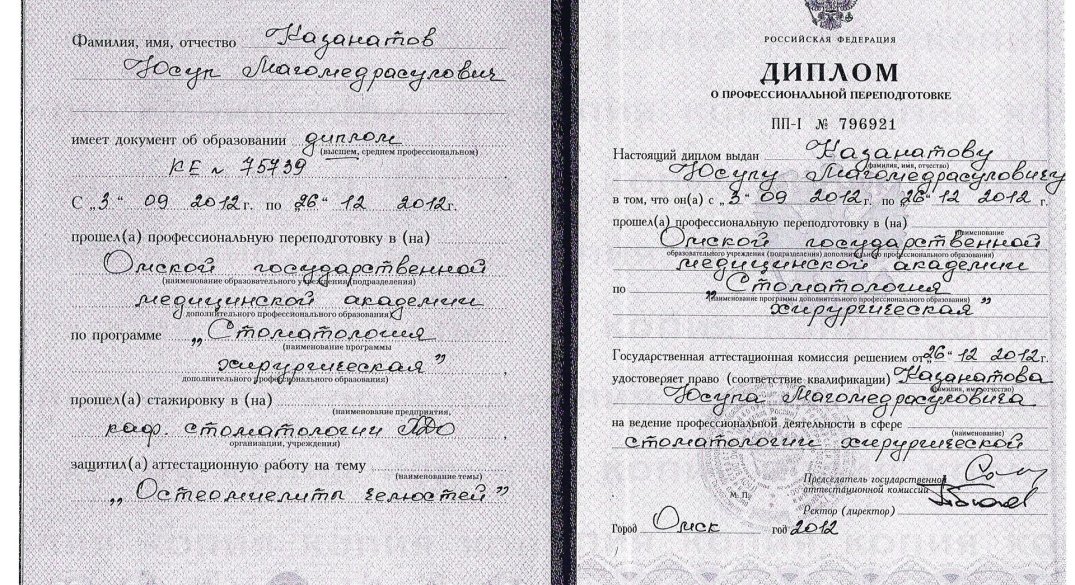 Фамилия, имя, отчество Казанатов
Юсуп Магомедрасулович
имеет документ об образовании диплом
(высшем, среднем профессиональном)
КЕ № 75739
С „3“ 09 2012 г. по „26“ 12 2012 г.
прошел(а) профессиональную переподготовку в (на)
Омской государственной
(наименование образовательного учреждения (подразделения)
медицинской академии
дополнительного профессионального образования)
по программе „Стоматология
(наименование программы
хирургическая”
дополнительного профессионального образования)
прошел(а) стажировку в (на)
(наименование предприятия,
каф. стоматологии ПДО
организации, учреждения)
защитил(а) аттестационную работу на тему
(наименование темы)
„Остеомиелиты челюстей”
РОССИЙСКАЯ ФЕДЕРАЦИЯ
ДИПЛОМ
О ПРОФЕССИОНАЛЬНОЙ ПЕРЕПОДГОТОВКЕ
ПП-I № 796921
Настоящий диплом выдан Казанатову
(фамилия, имя, отчество)
Юсупу Магомедрасуловичу
в том, что он(а) с „3“ 09 2012 г. по „26“ 12 2012 г.
прошел(а) профессиональную переподготовку в (на)
(наименование
Омской государственной
образовательного учреждения (подразделения) дополнительного профессионального образования)
медицинской академии
по „Стоматология
(наименование программы дополнительного профессионального образования)
хирургическая”
Государственная аттестационная комиссия решением от „26“ 12 2012 г.
удостоверяет право (соответствие квалификации) Казанатова
(фамилия, имя, отчество)
Юсупа Магомедрасуловича
на ведение профессиональной деятельности в сфере
(наименование)
стоматологии хирургической
Председатель государственной
аттестационной комиссии
М. П.
Ректор (директор)
Город Омск год 2012